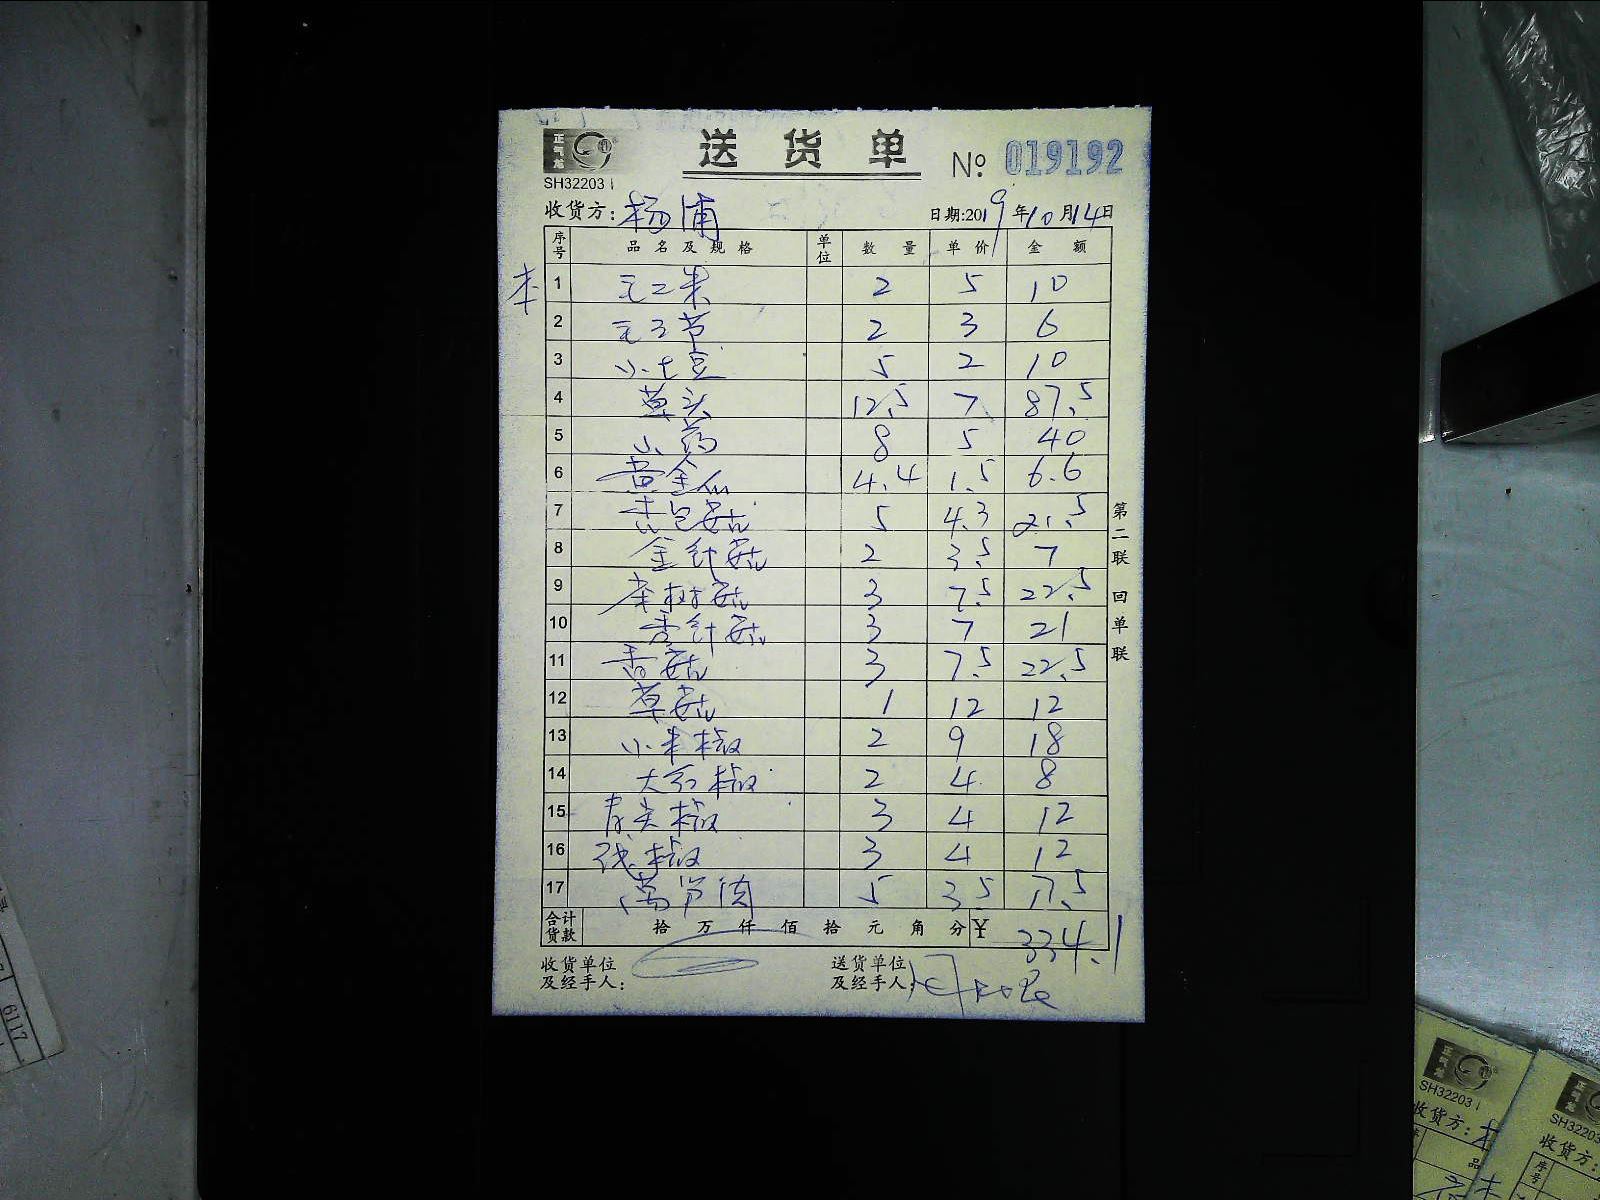 正气龙
送货单 № 019192
SH32203
收货方: 杨浦 日期:2019年10月14日
序号 品名及规格 单位 数量 单价 金额
本
1 毛二米 2 5 10
2 毛子节 2 3 6
3 小土豆 5 2 10
4 草头 12.5 7 87.5
5 山药 8 5 40
6 黄金瓜 4.4 1.5 6.6
7 杏包菇 5 4.3 21.5
8 金针菇 2 3.5 7
9 茶树菇 3 7.5 22.5
10 秀针菇 3 7 21
11 香菇 3 7.5 22.5
12 草菇 1 12 12
13 小米椒 2 9 18
14 大红椒 2 4 8
15 青尖椒 3 4 12
16 线椒 3 4 12
17 莴笋肉 5 3.5 17.5
合计货款 拾万仟佰拾元角分 ¥ 334.1
收货单位及经手人: 送货单位及经手人:
第二联 回单联
6117
正气龙
SH32203
收货方:
品
正气龙
SH32203
收货方:
序号